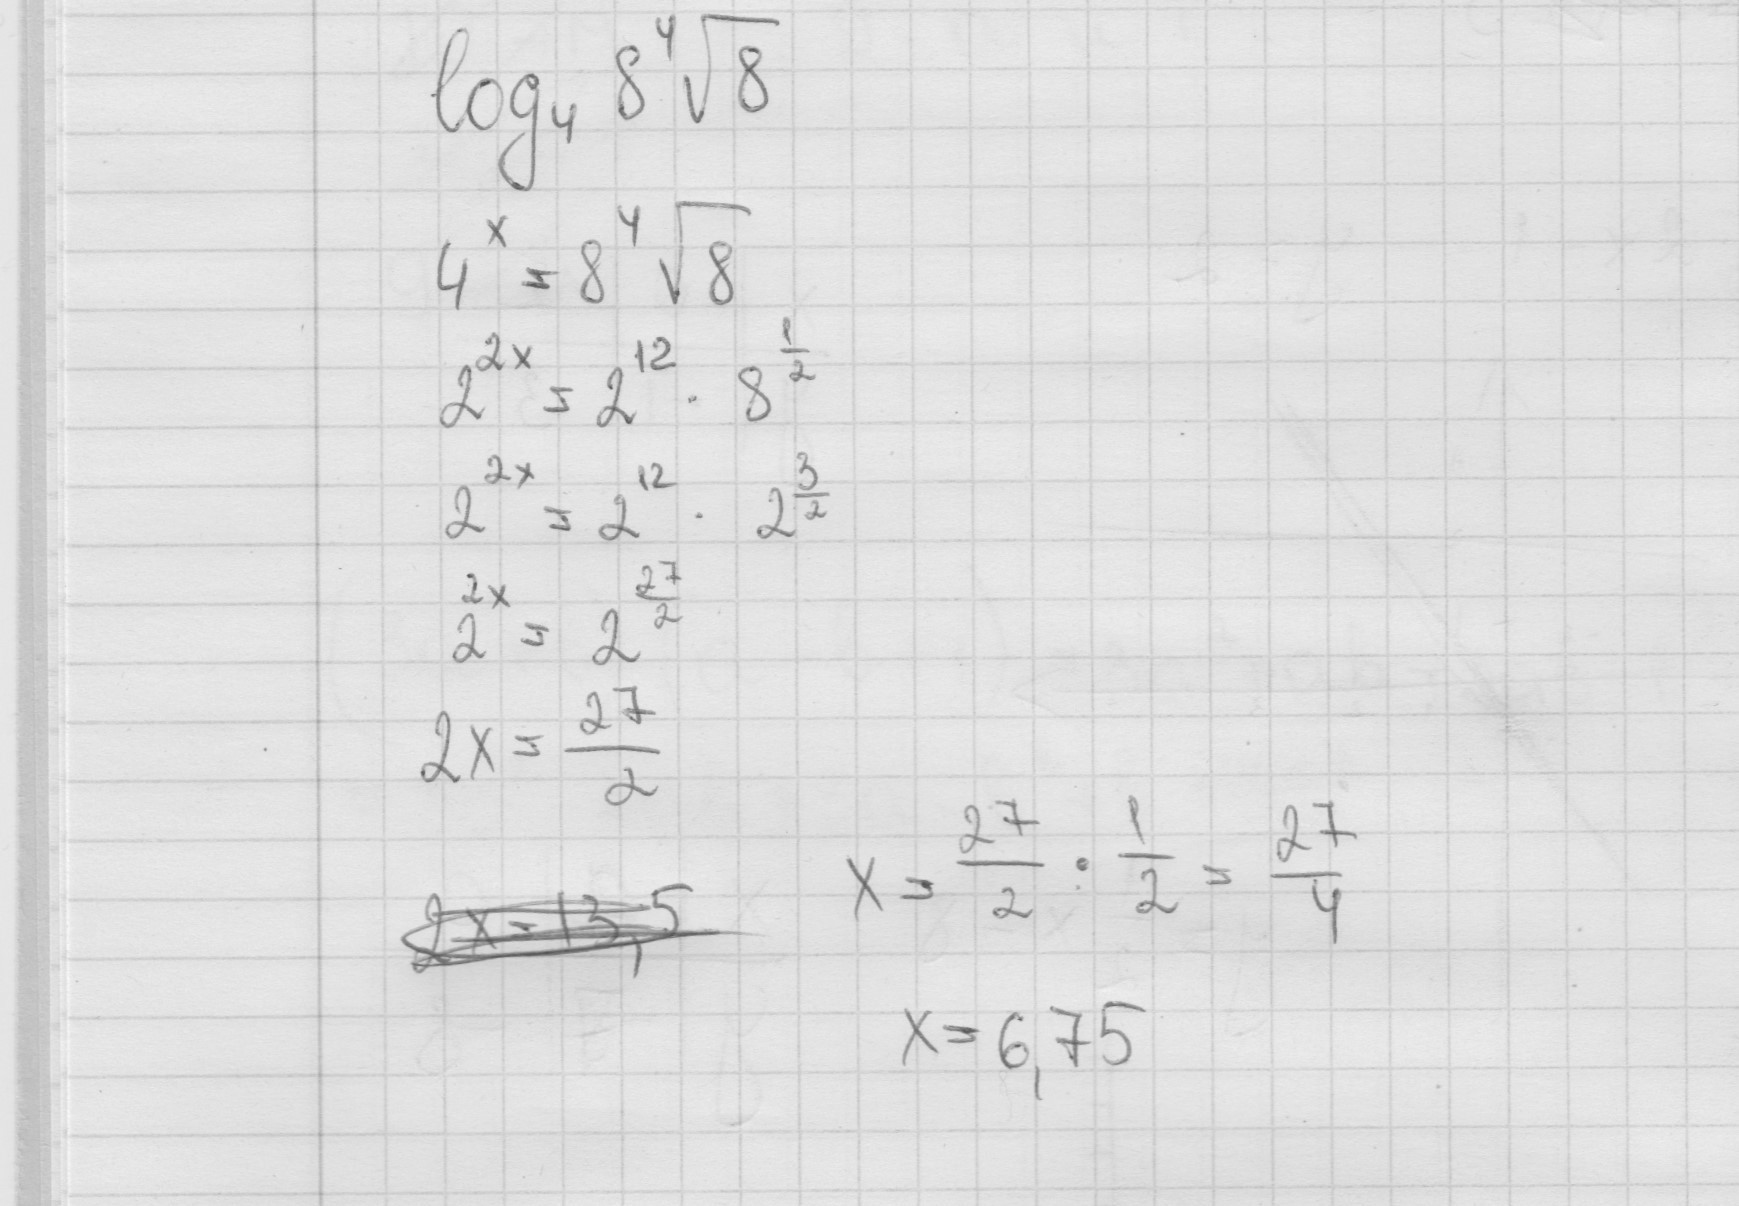 log₄ 8⁴√8
4ˣ = 8⁴√8
2^{2x} = 2^{12} · 8^{\frac{1}{2}}
2^{2x} = 2^{12} · 2^{\frac{3}{2}}
2^{2x} = 2^{\frac{27}{2}}
2x = \frac{27}{2}
2x = 13,5
x = \frac{27}{2} : \frac{1}{2} = \frac{27}{4}
x = 6,75